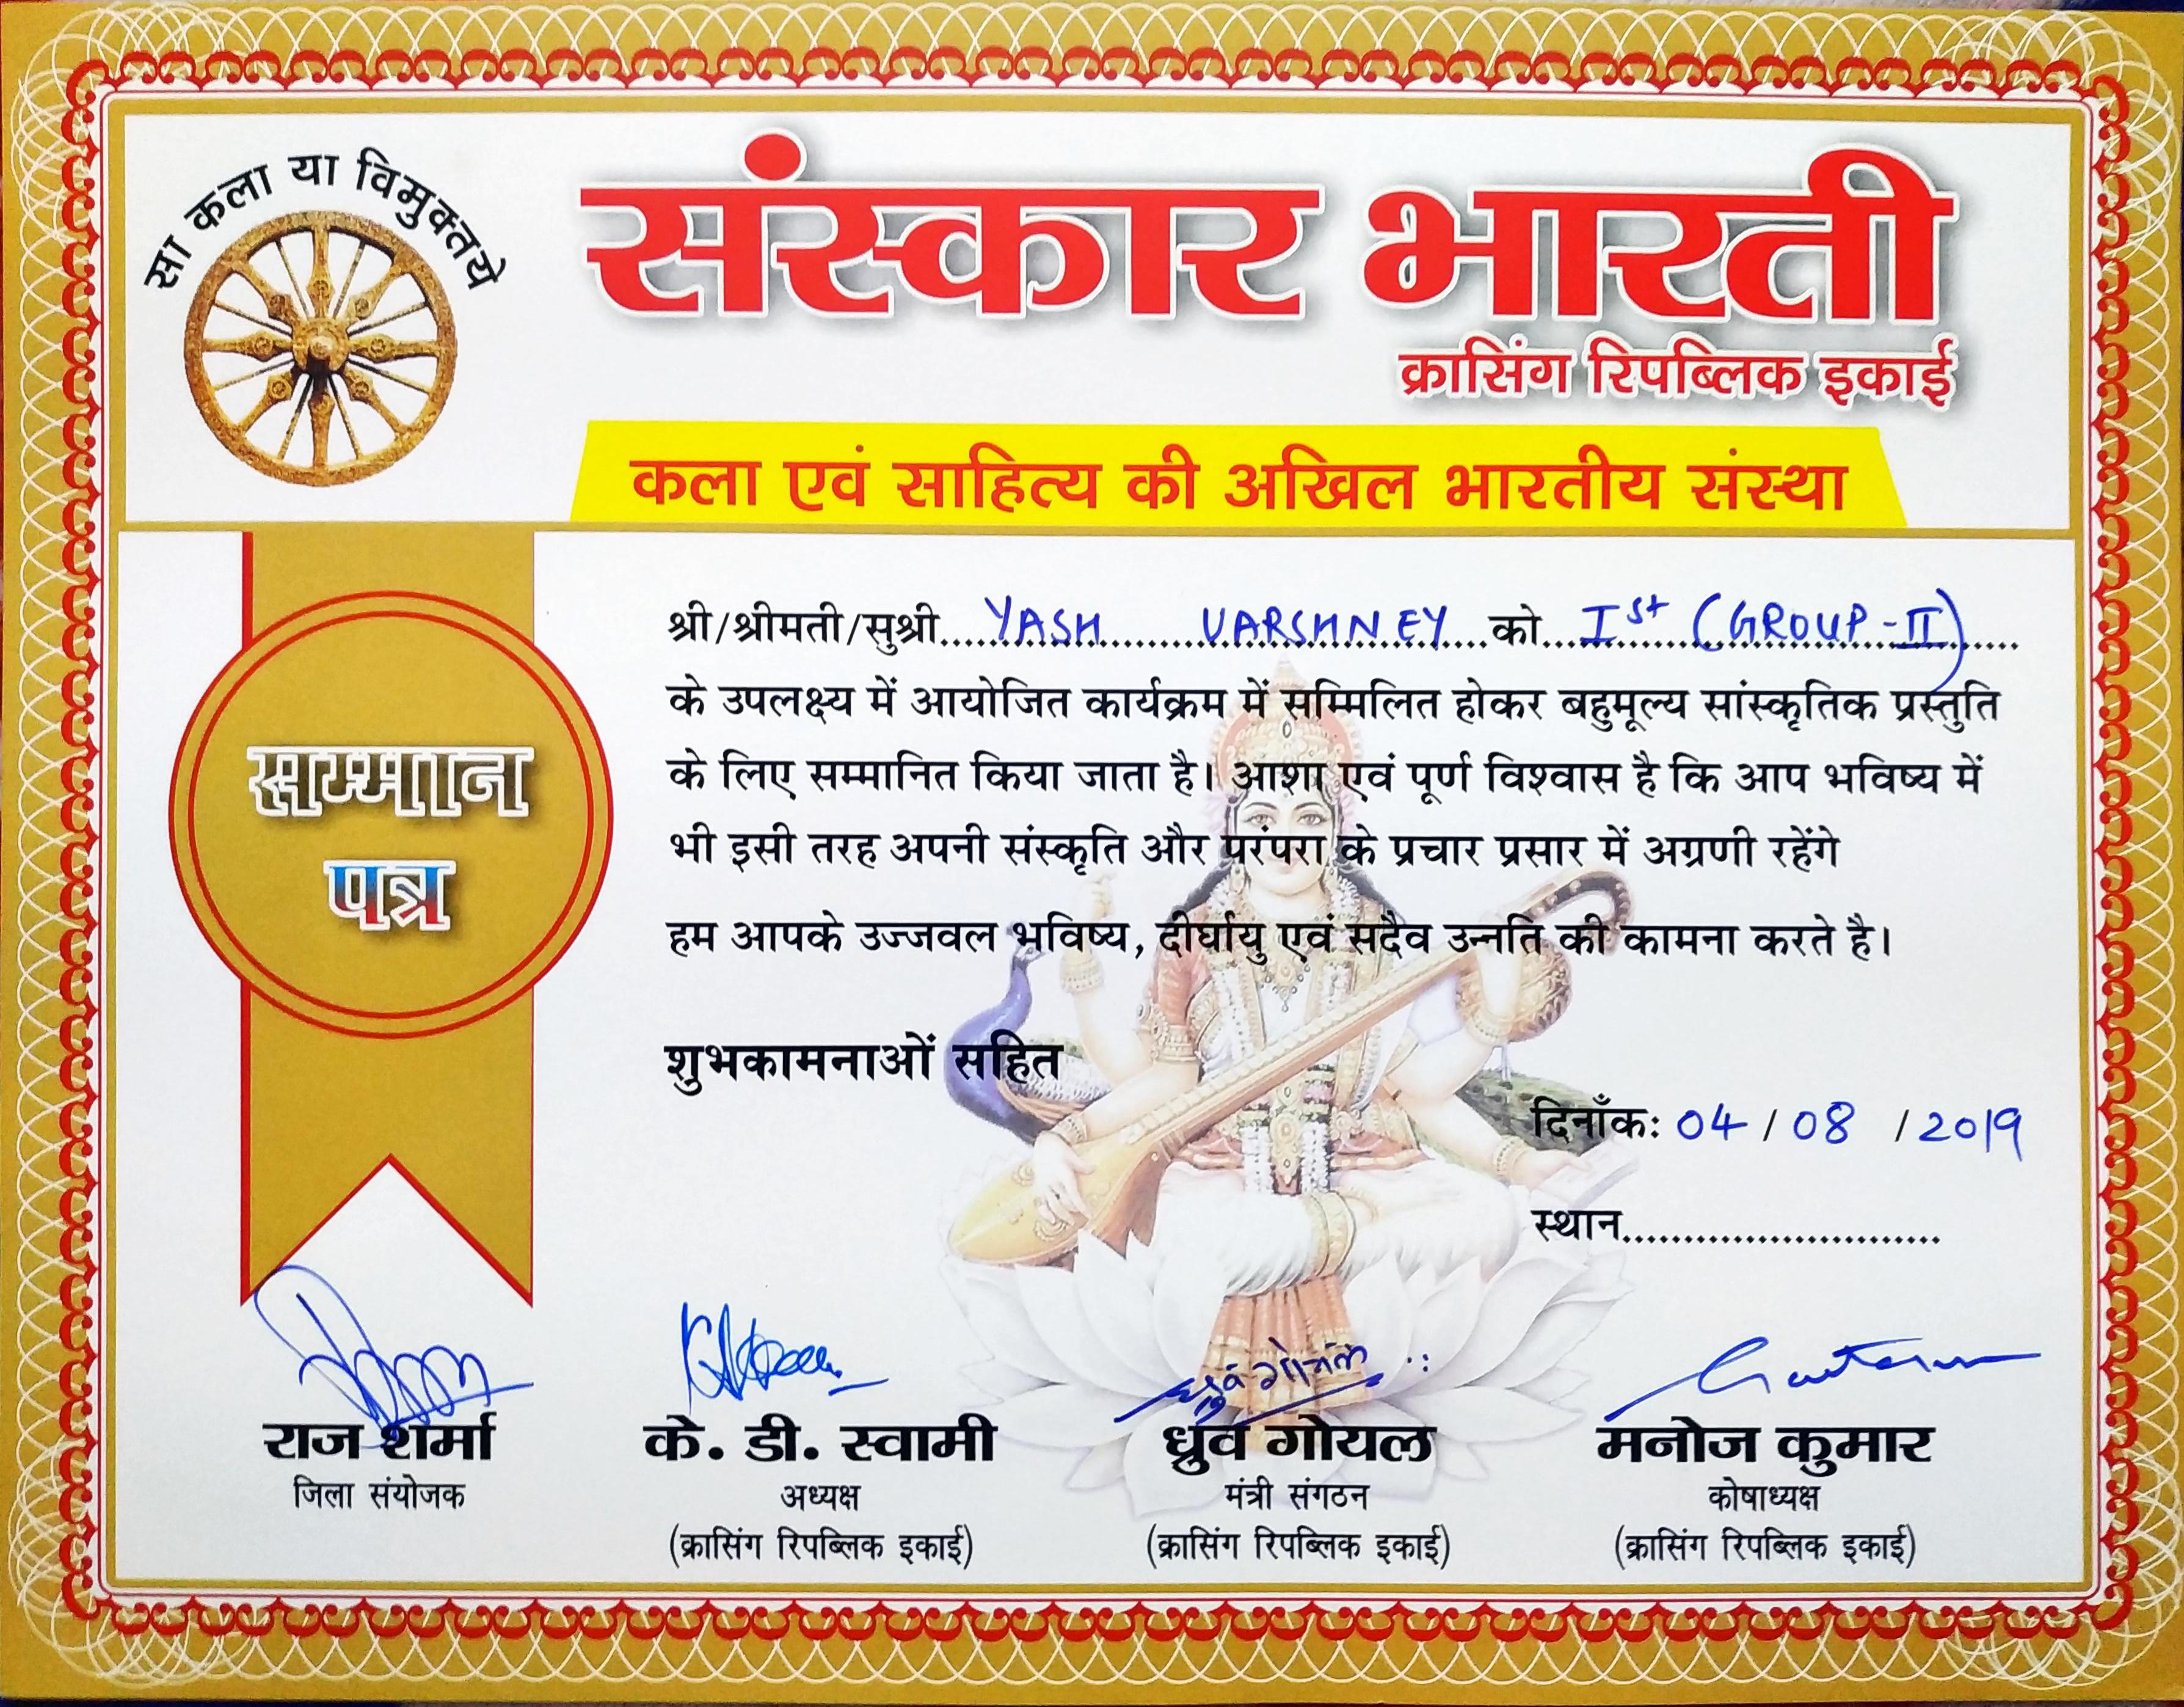 सा कला या विमुक्तये
संस्कार भारती
क्रासिंग रिपब्लिक इकाई
कला एवं साहित्य की अखिल भारतीय संस्था
सम्मान
पत्र
श्री/श्रीमती/सुश्री.....YASH VARSHNEY.....को.....Ist (GROUP-II).....
के उपलक्ष्य में आयोजित कार्यक्रम में सम्मिलित होकर बहुमूल्य सांस्कृतिक प्रस्तुति
के लिए सम्मानित किया जाता है। आशा एवं पूर्ण विश्वास है कि आप भविष्य में
भी इसी तरह अपनी संस्कृति और परंपरा के प्रचार प्रसार में अग्रणी रहेंगे
हम आपके उज्जवल भविष्य, दीर्घायु एवं सदैव उन्नति की कामना करते है।
शुभकामनाओं सहित
दिनाँक: 04 / 08 / 2019
स्थान..........................
ध्रुव गोयल
राज शर्मा के. डी. स्वामी ध्रुव गोयल मनोज कुमार
जिला संयोजक अध्यक्ष मंत्री संगठन कोषाध्यक्ष
(क्रासिंग रिपब्लिक इकाई) (क्रासिंग रिपब्लिक इकाई) (क्रासिंग रिपब्लिक इकाई)